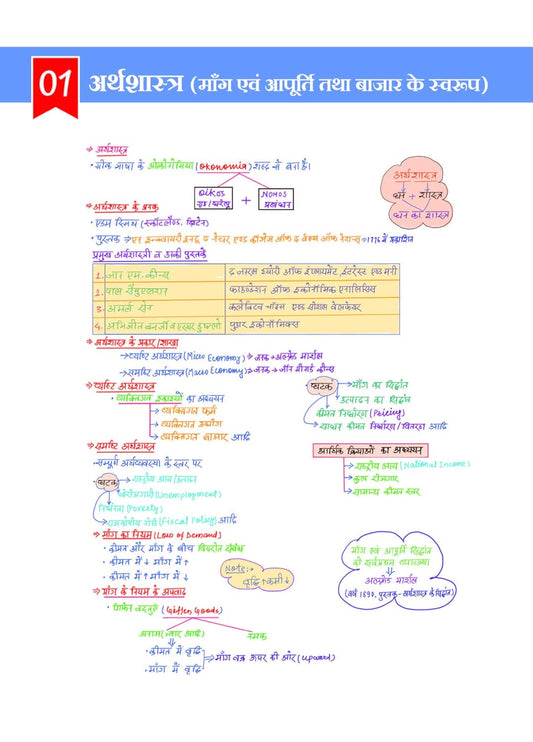 01 अर्थशास्त्र (माँग एवं आपूर्ति तथा बाजार के स्वरूप)
⇒ अर्थशास्त्र
• ग्रीक भाषा के ओकोनोमिया (Okonomia) शब्द से बना है।
Oikos
गृह/घरेलू
+
Nomos
प्रबंधन
अर्थशास्त्र
धर्म + शास्त्र
धन का शास्त्र
⇒ अर्थशास्त्र के जनक
• एडम स्मिथ (स्कॉटलैण्ड, ब्रिटेन)
• पुस्तक ⇒ एन इन्क्वायरी इनटू द नेचर एण्ड कॉजेस ऑफ द वेल्थ ऑफ नेशन्स ⇒ 1776 में प्रकाशित
प्रमुख अर्थशास्त्री व उनकी पुस्तकें
1. जान एम. कीन्स द जनरल थ्योरी ऑफ इंप्लायमेंट इंटरेस्ट एण्ड मनी
2. पाल सैमुएलसन फाउण्डेशन ऑफ इकोनॉमिक एनालिसिस
3. अमर्त्य सेन कलेक्टिव चॉइस एण्ड सोशल वेलफेयर
4. अभिजीत बनर्जी व एस्थर डुफ्लो पुअर इकोनॉमिक्स
⇒ अर्थशास्त्र के प्रकार/शाखा
→ व्यष्टि अर्थशास्त्र (Micro Economy) ⇒ जनक → अल्फ्रेड मार्शल
→ समष्टि अर्थशास्त्र (Macro Economy) ⇒ जनक → जॉन मेनार्ड कीन्स
⇒ व्यष्टि अर्थशास्त्र
• व्यक्तिगत इकाइयों का अध्ययन
→ व्यक्तिगत फर्म
→ व्यक्तिगत उद्योग
→ व्यक्तिगत बाजार आदि
घटक
→ माँग का सिद्धांत
उत्पादन का सिद्धांत
कीमत निर्धारण (Pricing)
→ साधन कीमत निर्धारण/वितरण आदि
⇒ समष्टि अर्थशास्त्र
• सम्पूर्ण अर्थव्यवस्था के स्तर पर
घटक
→ राष्ट्रीय आय/उत्पादन
बेरोजगारी (Unemployment)
निर्धनता (Poverty)
→ राजकोषीय नीति (Fiscal Policy) आदि
आर्थिक क्रियाओं का अध्ययन
→ राष्ट्रीय आय (National Income)
→ कुल रोजगार
→ सामान्य कीमत स्तर
⇒ माँग का नियम (Law of Demand)
• कीमत और माँग के बीच विपरीत संबंध
• कीमत में ↓ माँग में ↑
• कीमत में ↑ माँग में ↓
Note:-
वृद्धि ↑ कमी ↓
माँग एवं आपूर्ति सिद्धांत
की सर्वप्रथम व्याख्या
अल्फ्रेड मार्शल
(वर्ष 1890, पुस्तक - अर्थशास्त्र के सिद्धांत)
⇒ माँग के नियम के अपवाद
• गिफेन वस्तुएँ (Giffen Goods)
अनाज (ज्वार आदि)
नमक
• कीमत में वृद्धि
• माँग में वृद्धि
⇒ माँग वक्र ऊपर की ओर (Upward)